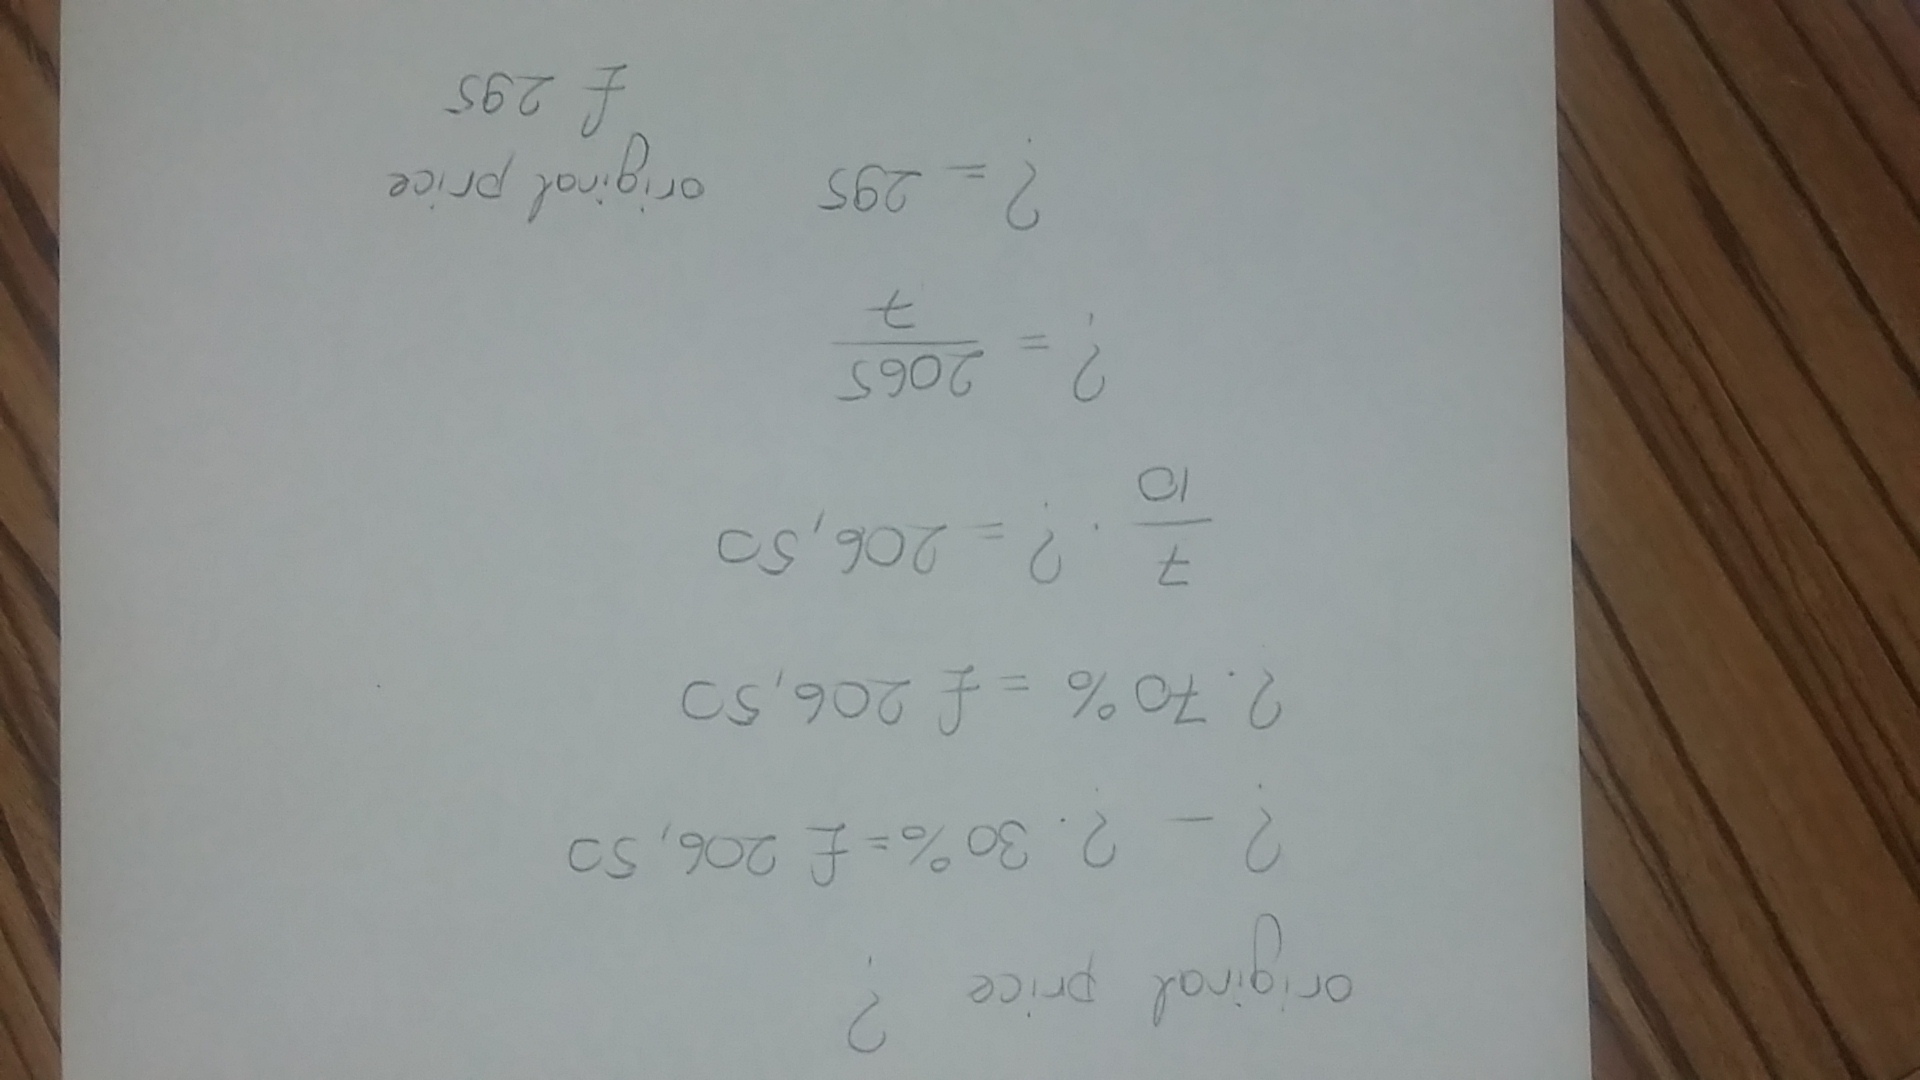 original price ?
? - ? . 30% = £ 206,50
? . 70% = £ 206,50
7/10 . ? = 206,50
? = 2065/7
? = 295 original price
£ 295